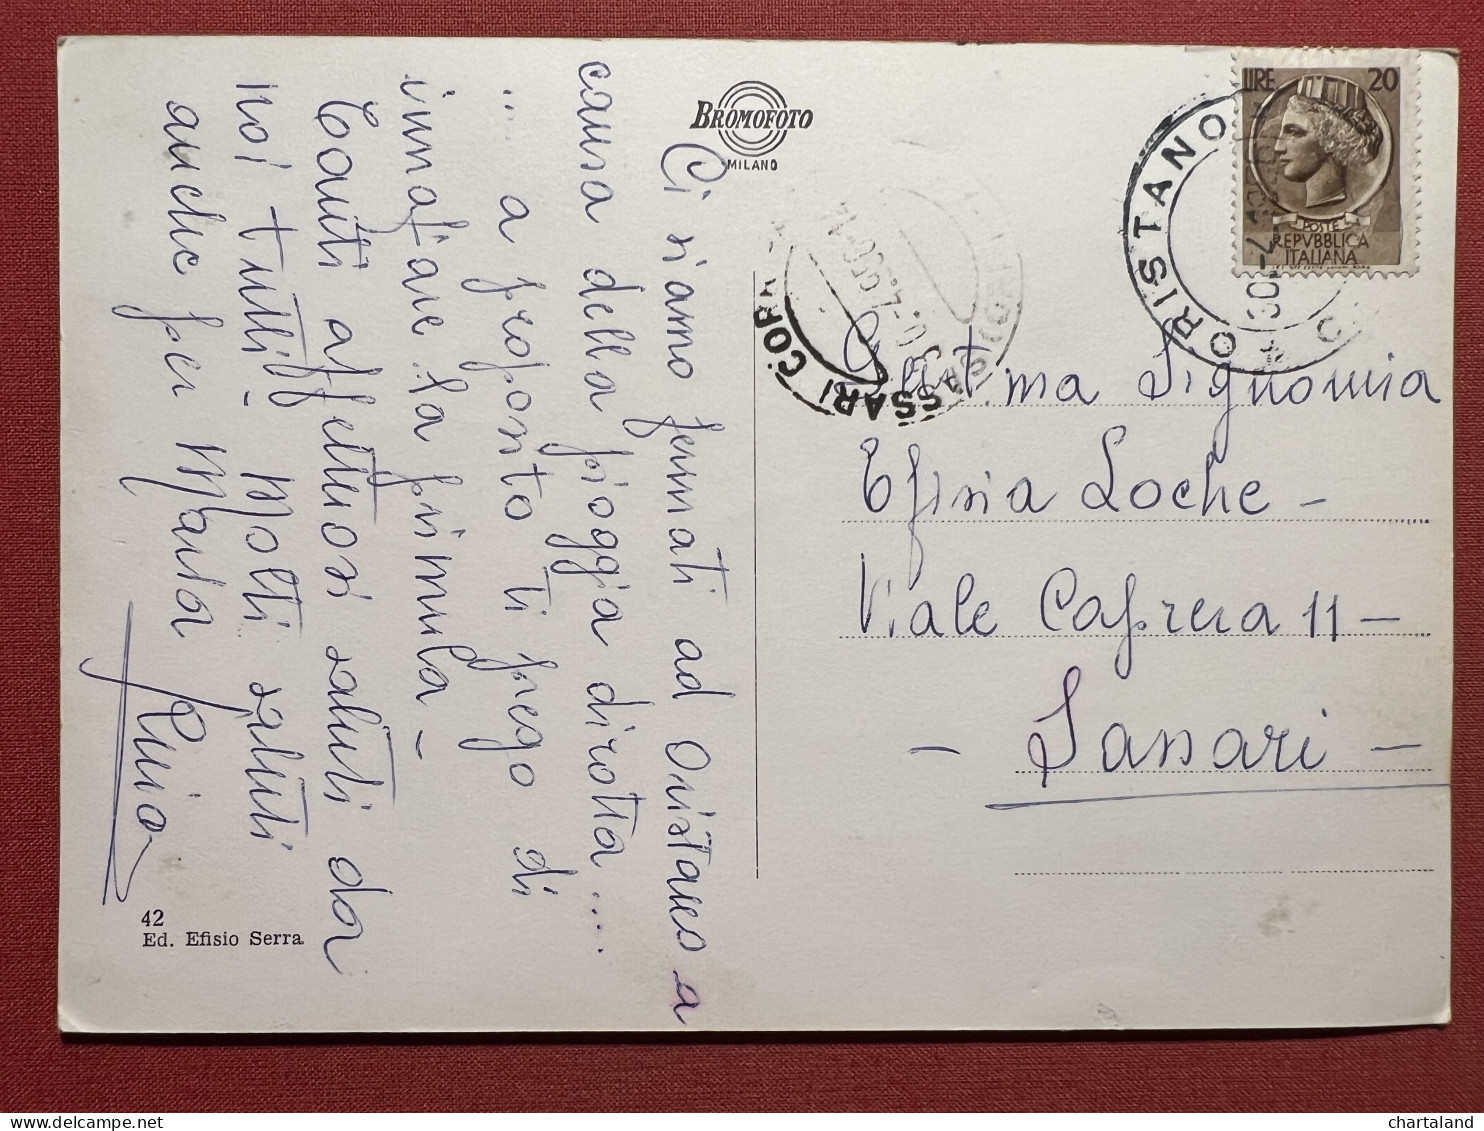 BROMOFOTO
MILANO
Ci siamo fermati ad Oristano a
causa della pioggia dirotta....
... a proposito ti prego di
innafiare la primula -
Tanti affettuosi saluti da
noi tutti. Molti saluti
anche per Maria
42
Ed. Efisio Serra
LIRE 20
POSTE
REPVBBLICA
ITALIANA
ORISTANO
SASSARI CORR
Gent.ma Signorina
Efisia Loche -
Viale Caprera 11 -
- Sassari -
chartaland